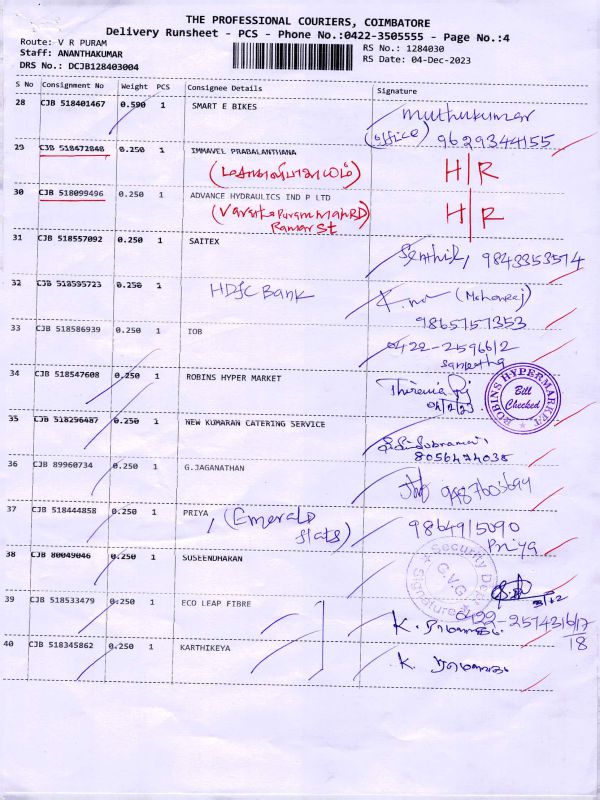 THE PROFESSIONAL COURIERS, COIMBATORE
Delivery Runsheet - PCS - Phone No.:0422-3505555 - Page No.:4
Route: V R PURAM RS No.: 1284030
Staff: ANANTHAKUMAR RS Date: 04-Dec-2023
DRS No.: DCJB128403004
S No Consignment No Weight PCS Consignee Details Signature
28 CJB 518401467 0.590 1 SMART E BIKES muthukumar
(office) 9629344155
29 CJB 518472848 0.250 1 IMMAVEL PRABALANTHANA H|R
30 CJB 518099496 0.250 1 ADVANCE HYDRAULICS IND P LTD H|R
Ramar St
31 CJB 518557092 0.250 1 SAITEX Senthil, 9843353574
32 CJB 518595723 0.250 1 HDFC Bank (Mahanraj)
9865757353
33 CJB 518586939 0.250 1 IOB 0422-2596612
34 CJB 518547608 0.250 1 ROBINS HYPER MARKET
ROBINS HYPERMARKET
Bill Checked
35 CJB 518296487 0.250 1 NEW KUMARAN CATERING SERVICE
8056474038
36 CJB 89960734 0.250 1 G.JAGANATHAN 9487603694
37 CJB 518444858 0.250 1 PRIYA, (Emerald flats) 9864915090
Priya
38 CJB 80049046 0.250 1 SUSEENDHARAN
Security Dept
C.V.G
Signature
39 CJB 518533479 0.250 1 ECO LEAP FIBRE 0422-2574316/17/18
40 CJB 518345862 0.250 1 KARTHIKEYA